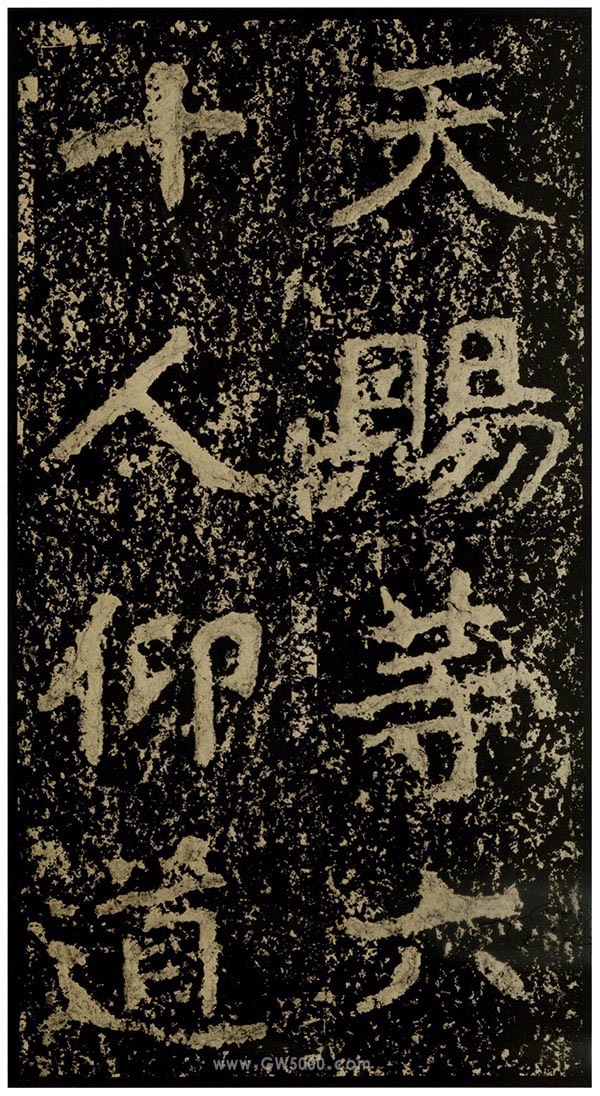 天賜等六
十人仰道
www.GW5000.com